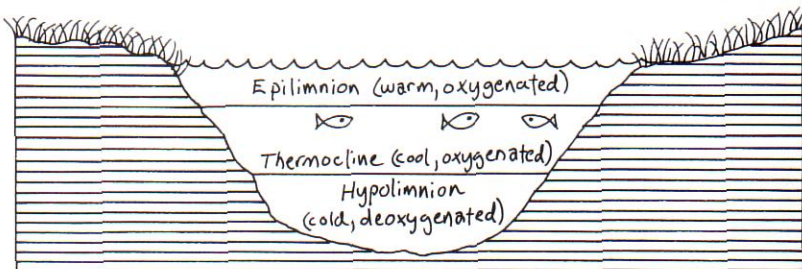 Epilimnion (warm, oxygenated)
Thermocline (cool, oxygenated)
Hypolimnion
(cold, deoxygenated)